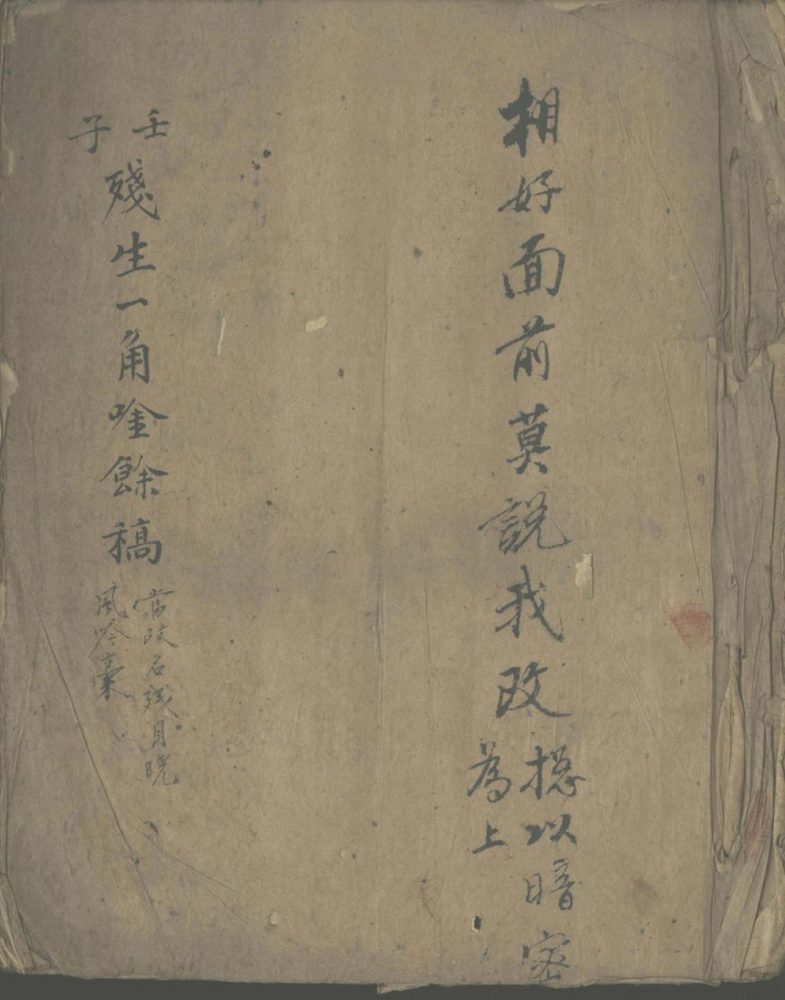 相好面前莫說我改
揔以暗密
為上
壬子
殘生一角唫餘稿
當改名残月晓
風吟稾